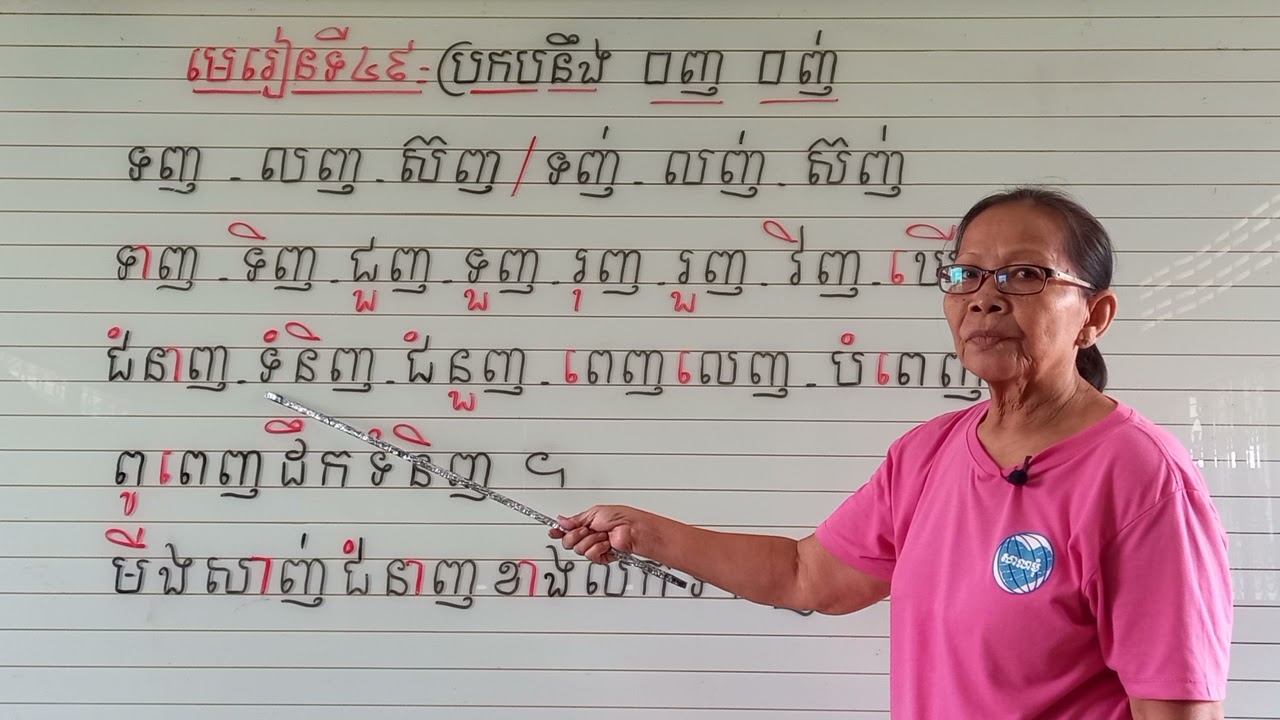 មេរៀនទី៤៩-ប្រកបនឹង □ញ □ញ់
ទញ - លញ - ស៊ញ / ទញ់ - លញ់ - ស៊ញ់
ទាញ - ទិញ - ជួញ - ទួញ - រុញ - រួញ - វិញ -
ជំនាញ - ទំនិញ - ជំនួញ - ពេញលេញ - បំពេញ
ពូពេញដឹកទំនិញ ។
មីងសាញ់ជំនាញខាង